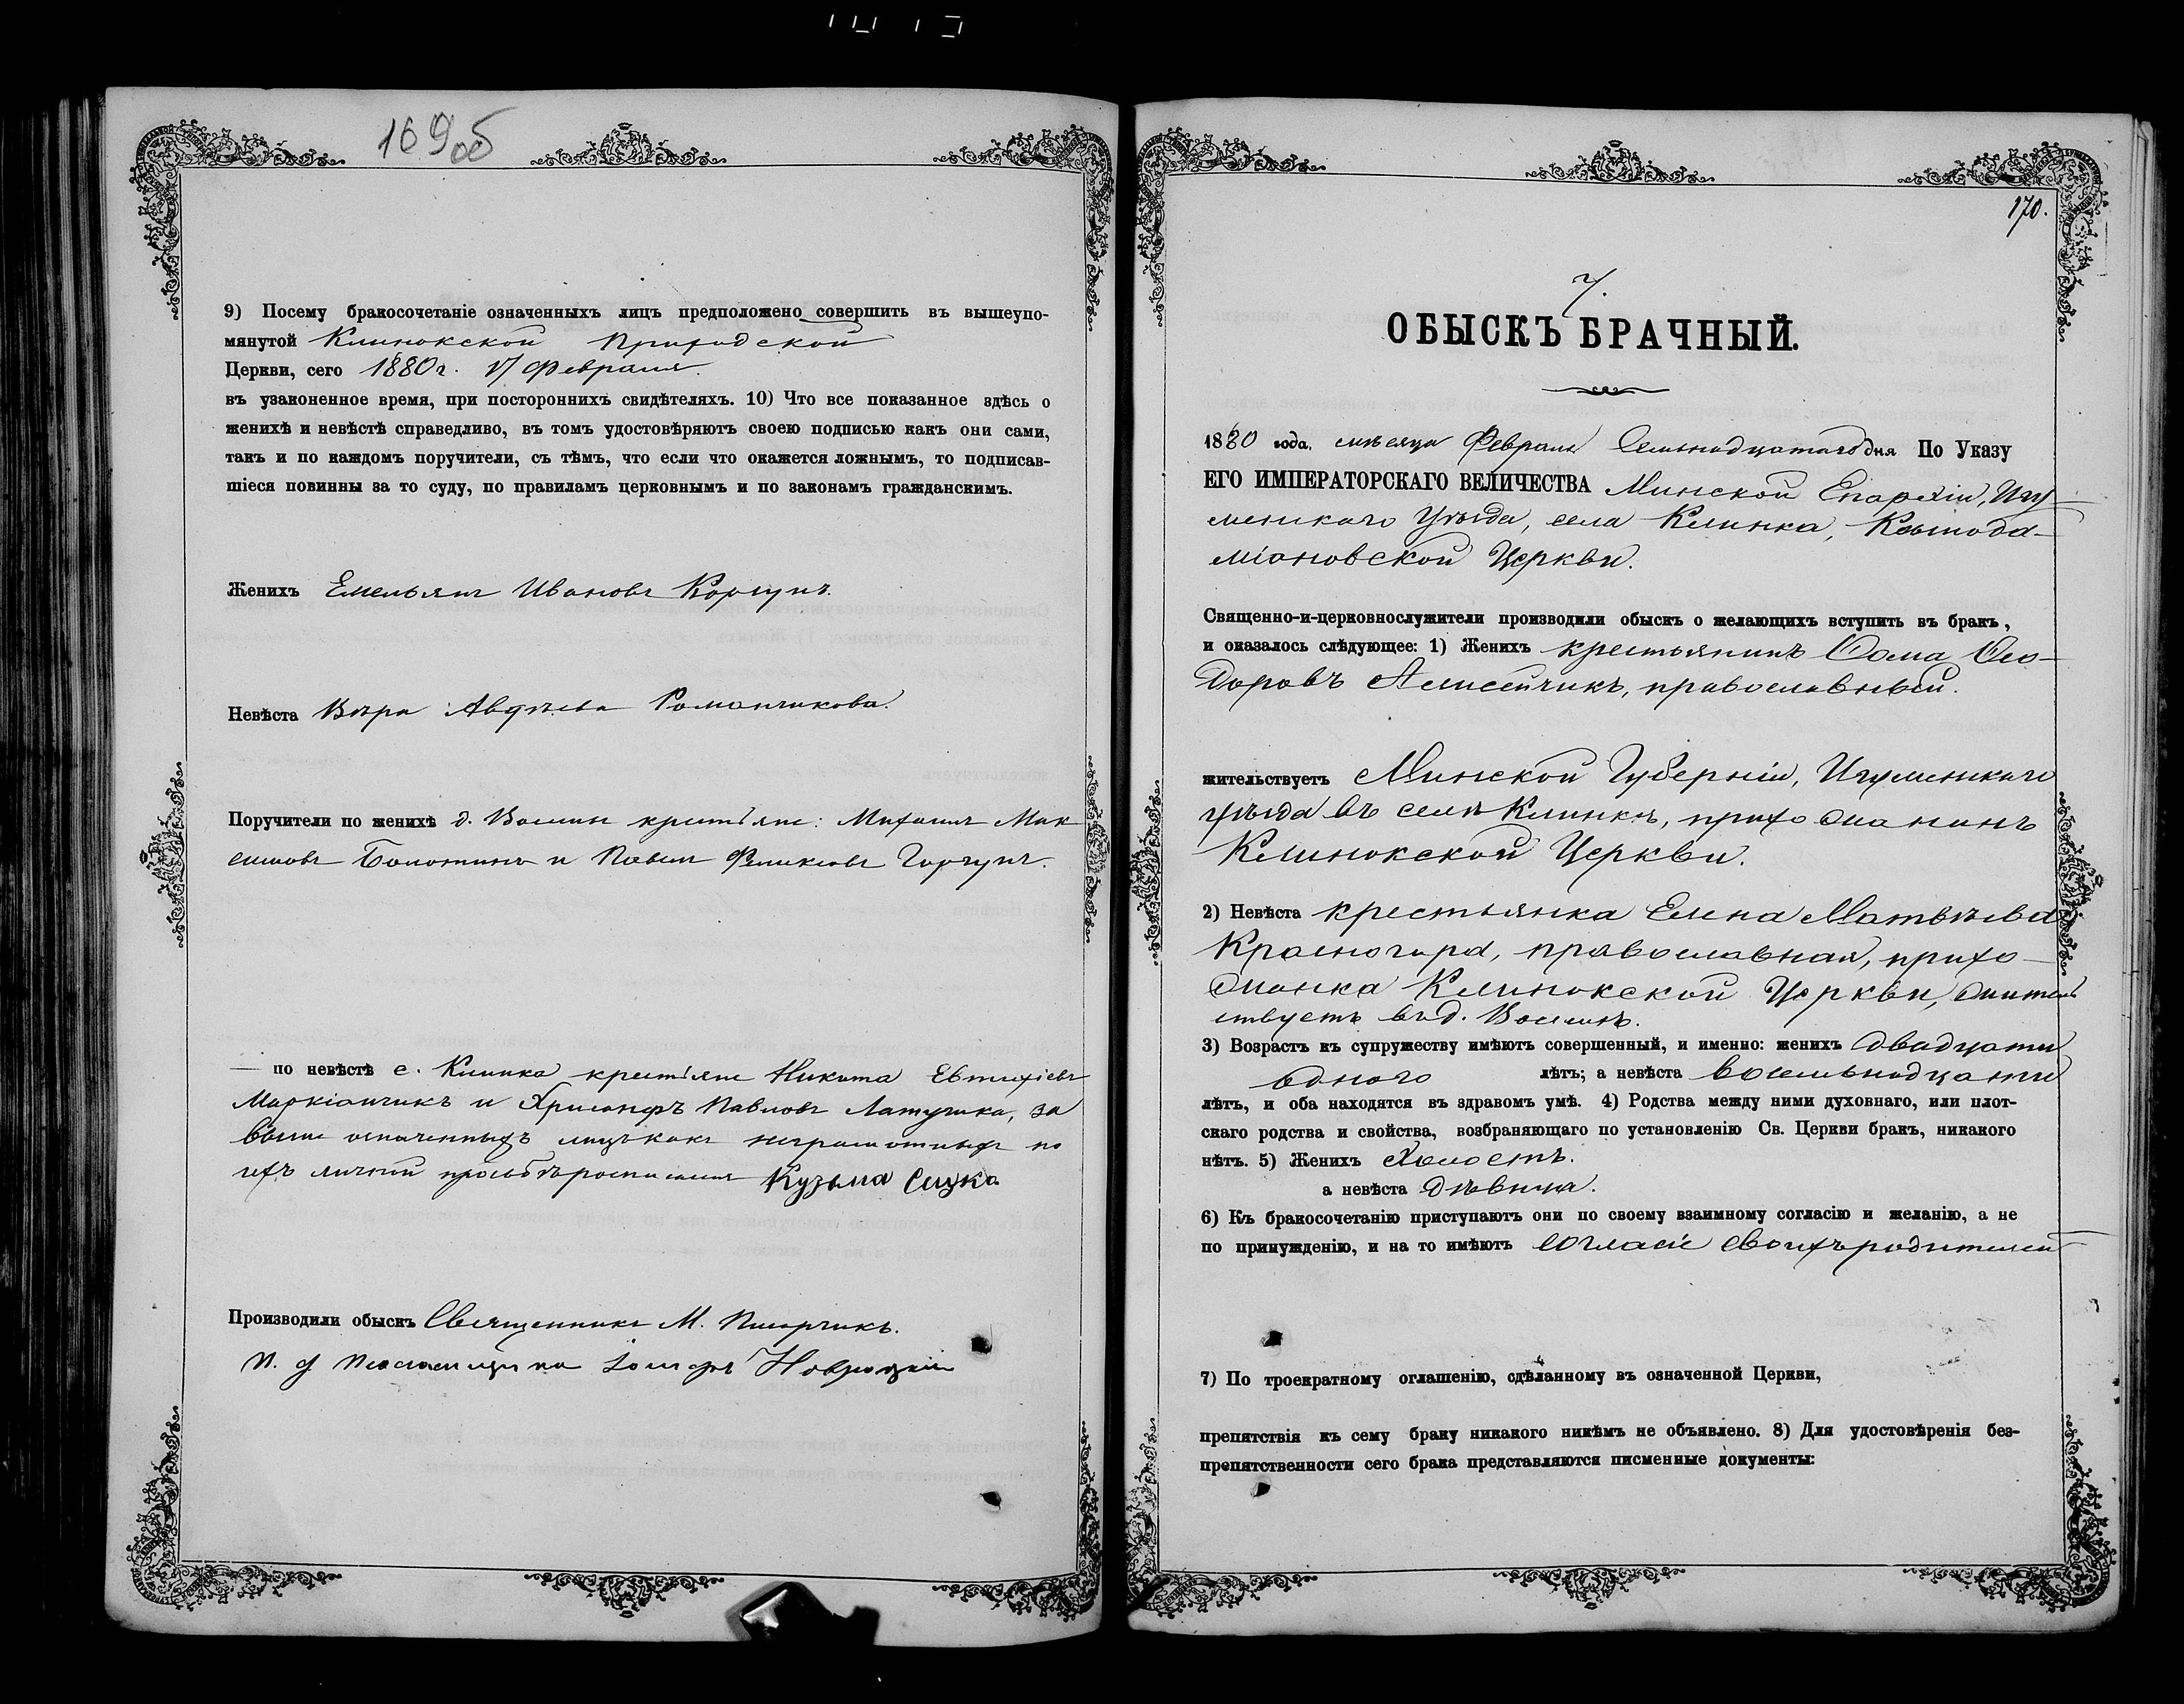 169об
9) Посему бракосочетаніе означенныхъ лицъ предположено совершить въ вышеупо-
мянутой Клинокской Приходской
Церкви, сего 1880 г. 17 Февраля.
въ узаконенное время, при постороннихъ свидѣтеляхъ. 10) Что все показанное здѣсь о
женихѣ и невѣстѣ справедливо, въ томъ удостовѣряютъ своею подписью какъ они сами,
такъ и по каждомъ поручители, съ тѣмъ, что если что окажется ложнымъ, то подписав-
шіеся повинны за то суду, по правиламъ церковнымъ и по законамъ гражданскимъ.
Женихъ Емельянъ Ивановъ Корзунъ.
Невѣста Вѣра Авдѣева Романчикова.
Поручители по женихѣ д. крестьяне: Михаилъ Мак
симовъ Болотинъ и Павелъ Феликсовъ
— по невѣстѣ с. Клинка крестьяне Никита Евтихіевъ
Маркіанчикъ и Хрисанфъ Павловъ Латушка, за
выше означенныхъ лицъ какъ неграмотныхъ по
ихъ личной прозьбѣ росписался Кузьма
Производили обыскъ Священникъ М. Писарчикъ.
И. д. Псаломщика Іосифъ Новроцкій
170.
7.
ОБЫСКЪ БРАЧНЫЙ.
1880 года, мѣсяца Февраля Семнадцатаго дня По Указу
ЕГО ИМПЕРАТОРСКАГО ВЕЛИЧЕСТВА Минской Епархіи, Игу-
менскаго Уѣзда, села Клинка, Космода-
міановской Церкви.
Священно-и-церковнослужители производили обыскъ о желающихъ вступить въ бракъ,
и оказалось слѣдующее: 1) Женихъ крестьянинъ Ѳома Ѳео-
доровъ Алисейчикъ, православный.
жительствуетъ Минской Губерніи, Игуменскаго
уѣзда въ селѣ Клинкѣ, прихожанинъ
Клинокской Церкви.
2) Невѣста крестьянка Елена Матвѣева
Красногира, православная, прихо-
жанка Клинокской Церкви, жительс
ствуетъ въ д.
3) Возрастъ къ супружеству имѣютъ совершенный, и именно: женихъ двадцати
одного лѣтъ; а невѣста восемьнадцати
лѣтъ, и оба находятся въ здравомъ умѣ. 4) Родства между ними духовнаго, или плот-
скаго родства и свойства, возбраняющаго по установленію Св. Церкви бракъ, никакого
нѣтъ. 5) Женихъ холостъ.
а невѣста дѣвица.
6) Къ бракосочетанію приступаютъ они по своему взаимному согласію и желанію, а не
по принужденію, и на то имѣютъ согласіе своихъ родителей
7) По троекратному оглашенію, сдѣланному въ означенной Церкви,
препятствія къ сему браку никакого никѣмъ не объявлено. 8) Для удостовѣренія без-
препятственности сего брака представляются писменные документы: